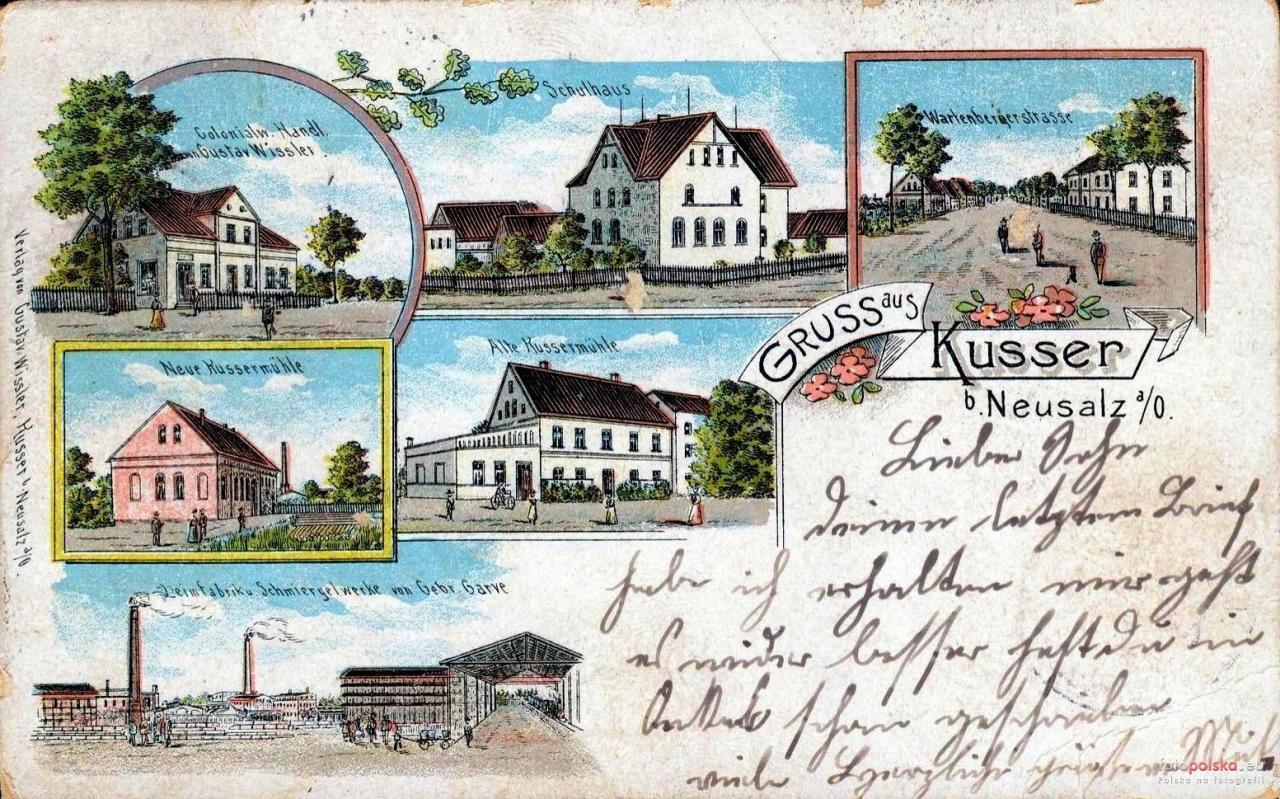 Colonialw. Handl.
von Gustav Wissler.
Schulhaus
Wartenbergerstrasse
Neue Kussermühle
Alte Kussermühle
GRUSS aus
Kusser
b. Neusalz a/O.
Leimfabrik u. Schmiergelwerke von Gebr. Garve
Verlag von Gustav Wissler, Kusser b. Neusalz a/O.
Lieber Sohn
deinen letzten Brief
habe ich erhalten mir geht
es wieder besser hast du
schon geschrieben
viele Herzliche Grüße
fotopolska.eu
Polska na fotografii